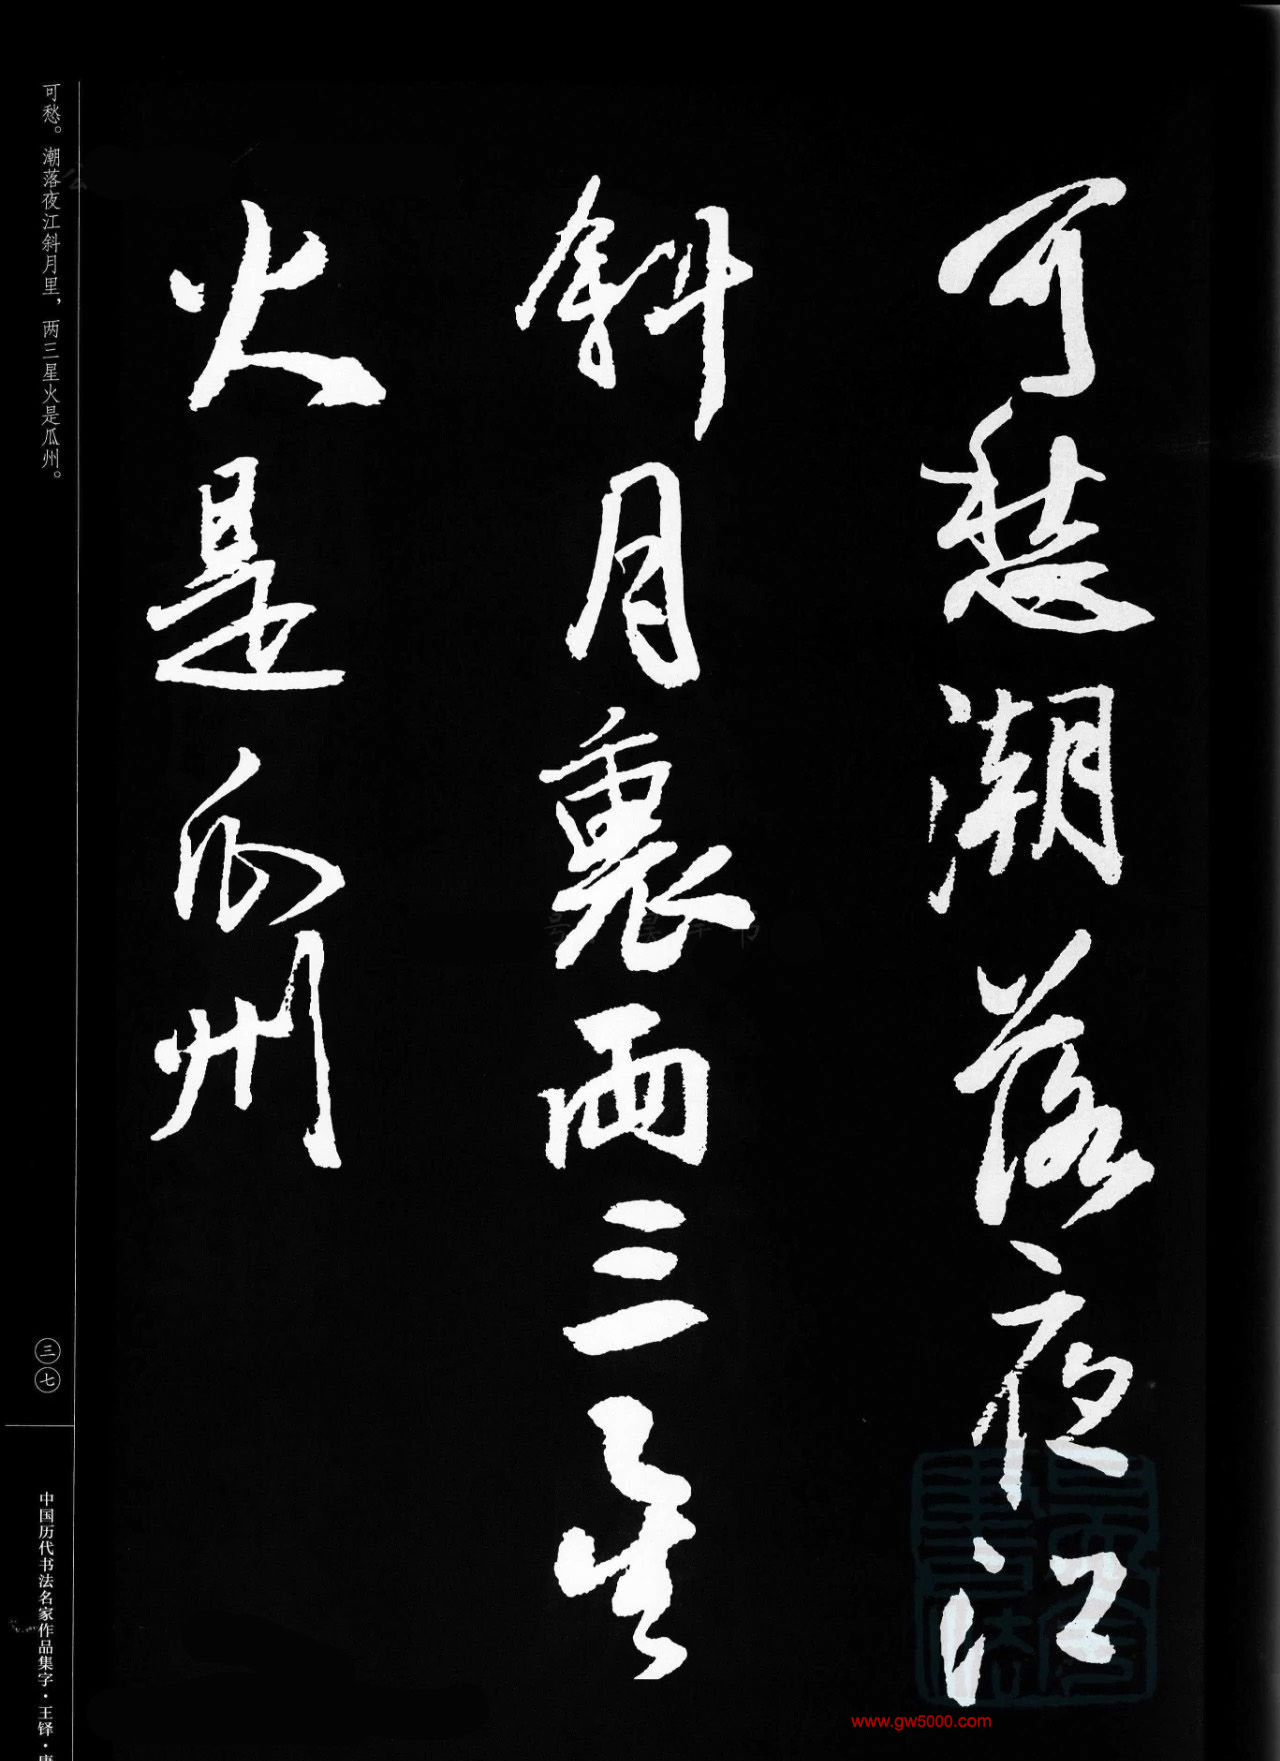 可愁潮落夜江
斜月裏两三星
火是瓜州
可愁。潮落夜江斜月里，两三星火是瓜州。
三七
中国历代书法名家作品集字·王铎·
www.gw5000.com